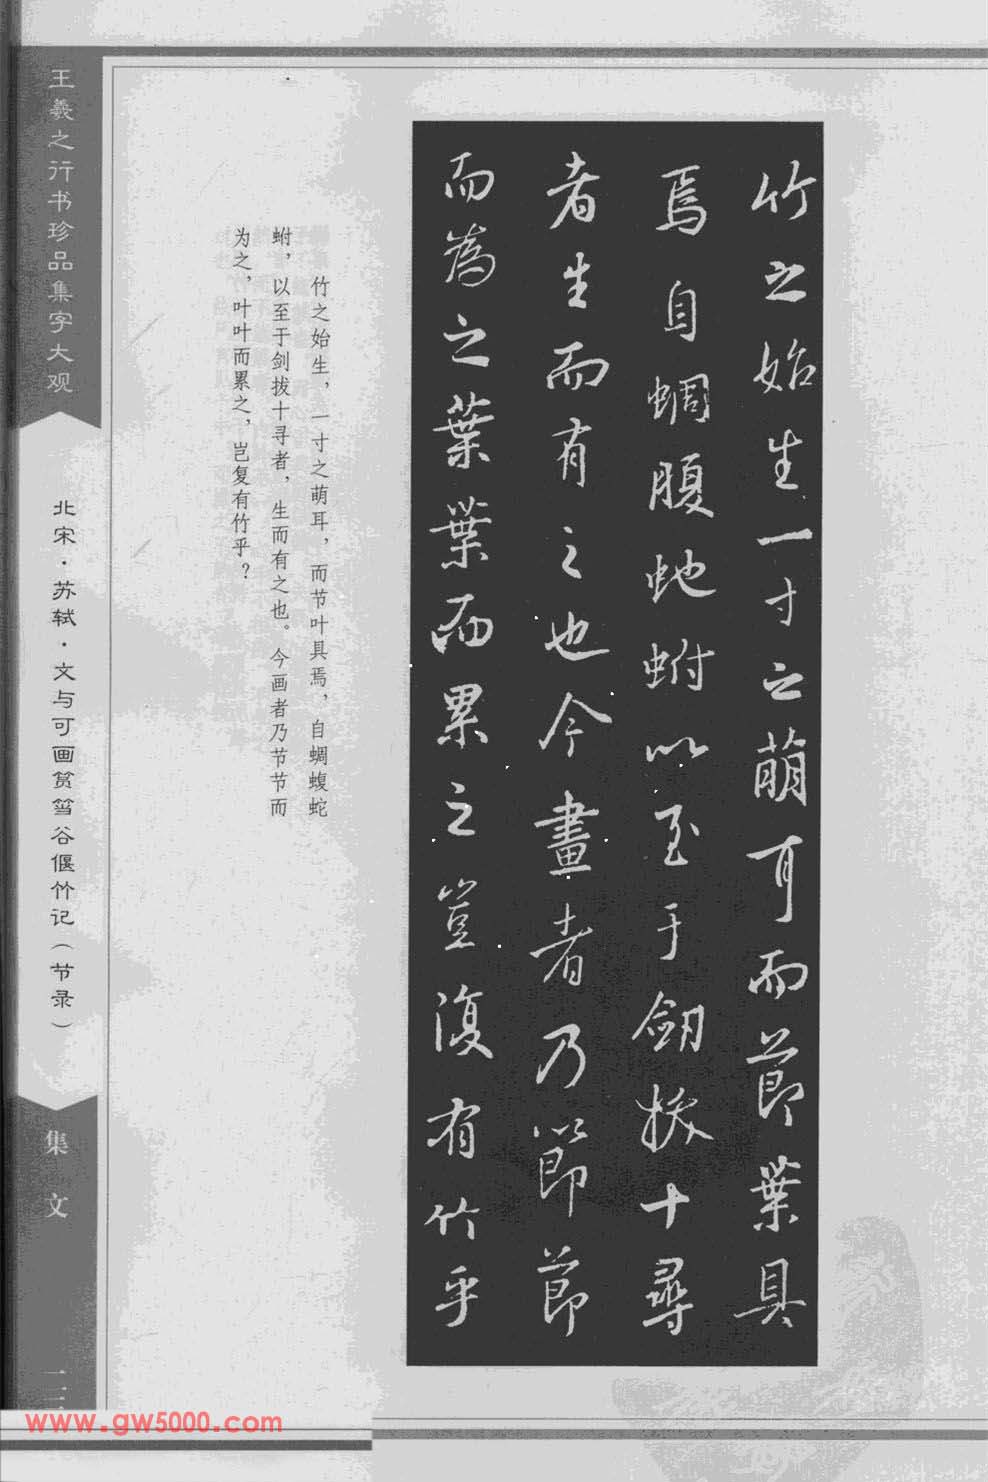 竹之始生一寸之萌耳而節葉具
焉自蜩腹虵蚹以至于劒拔十尋
者生而有之也今畫者乃節節
而為之葉葉而累之豈復有竹乎
竹之始生，一寸之萌耳，而节叶具焉，自蜩蝮蛇
蚹，以至于剑拔十寻者，生而有之也。今画者乃节节而
为之，叶叶而累之，岂复有竹乎？
王羲之行书珍品集字大观
北宋·苏轼·文与可画筼筜谷偃竹记（节录）
集文
www.gw5000.com